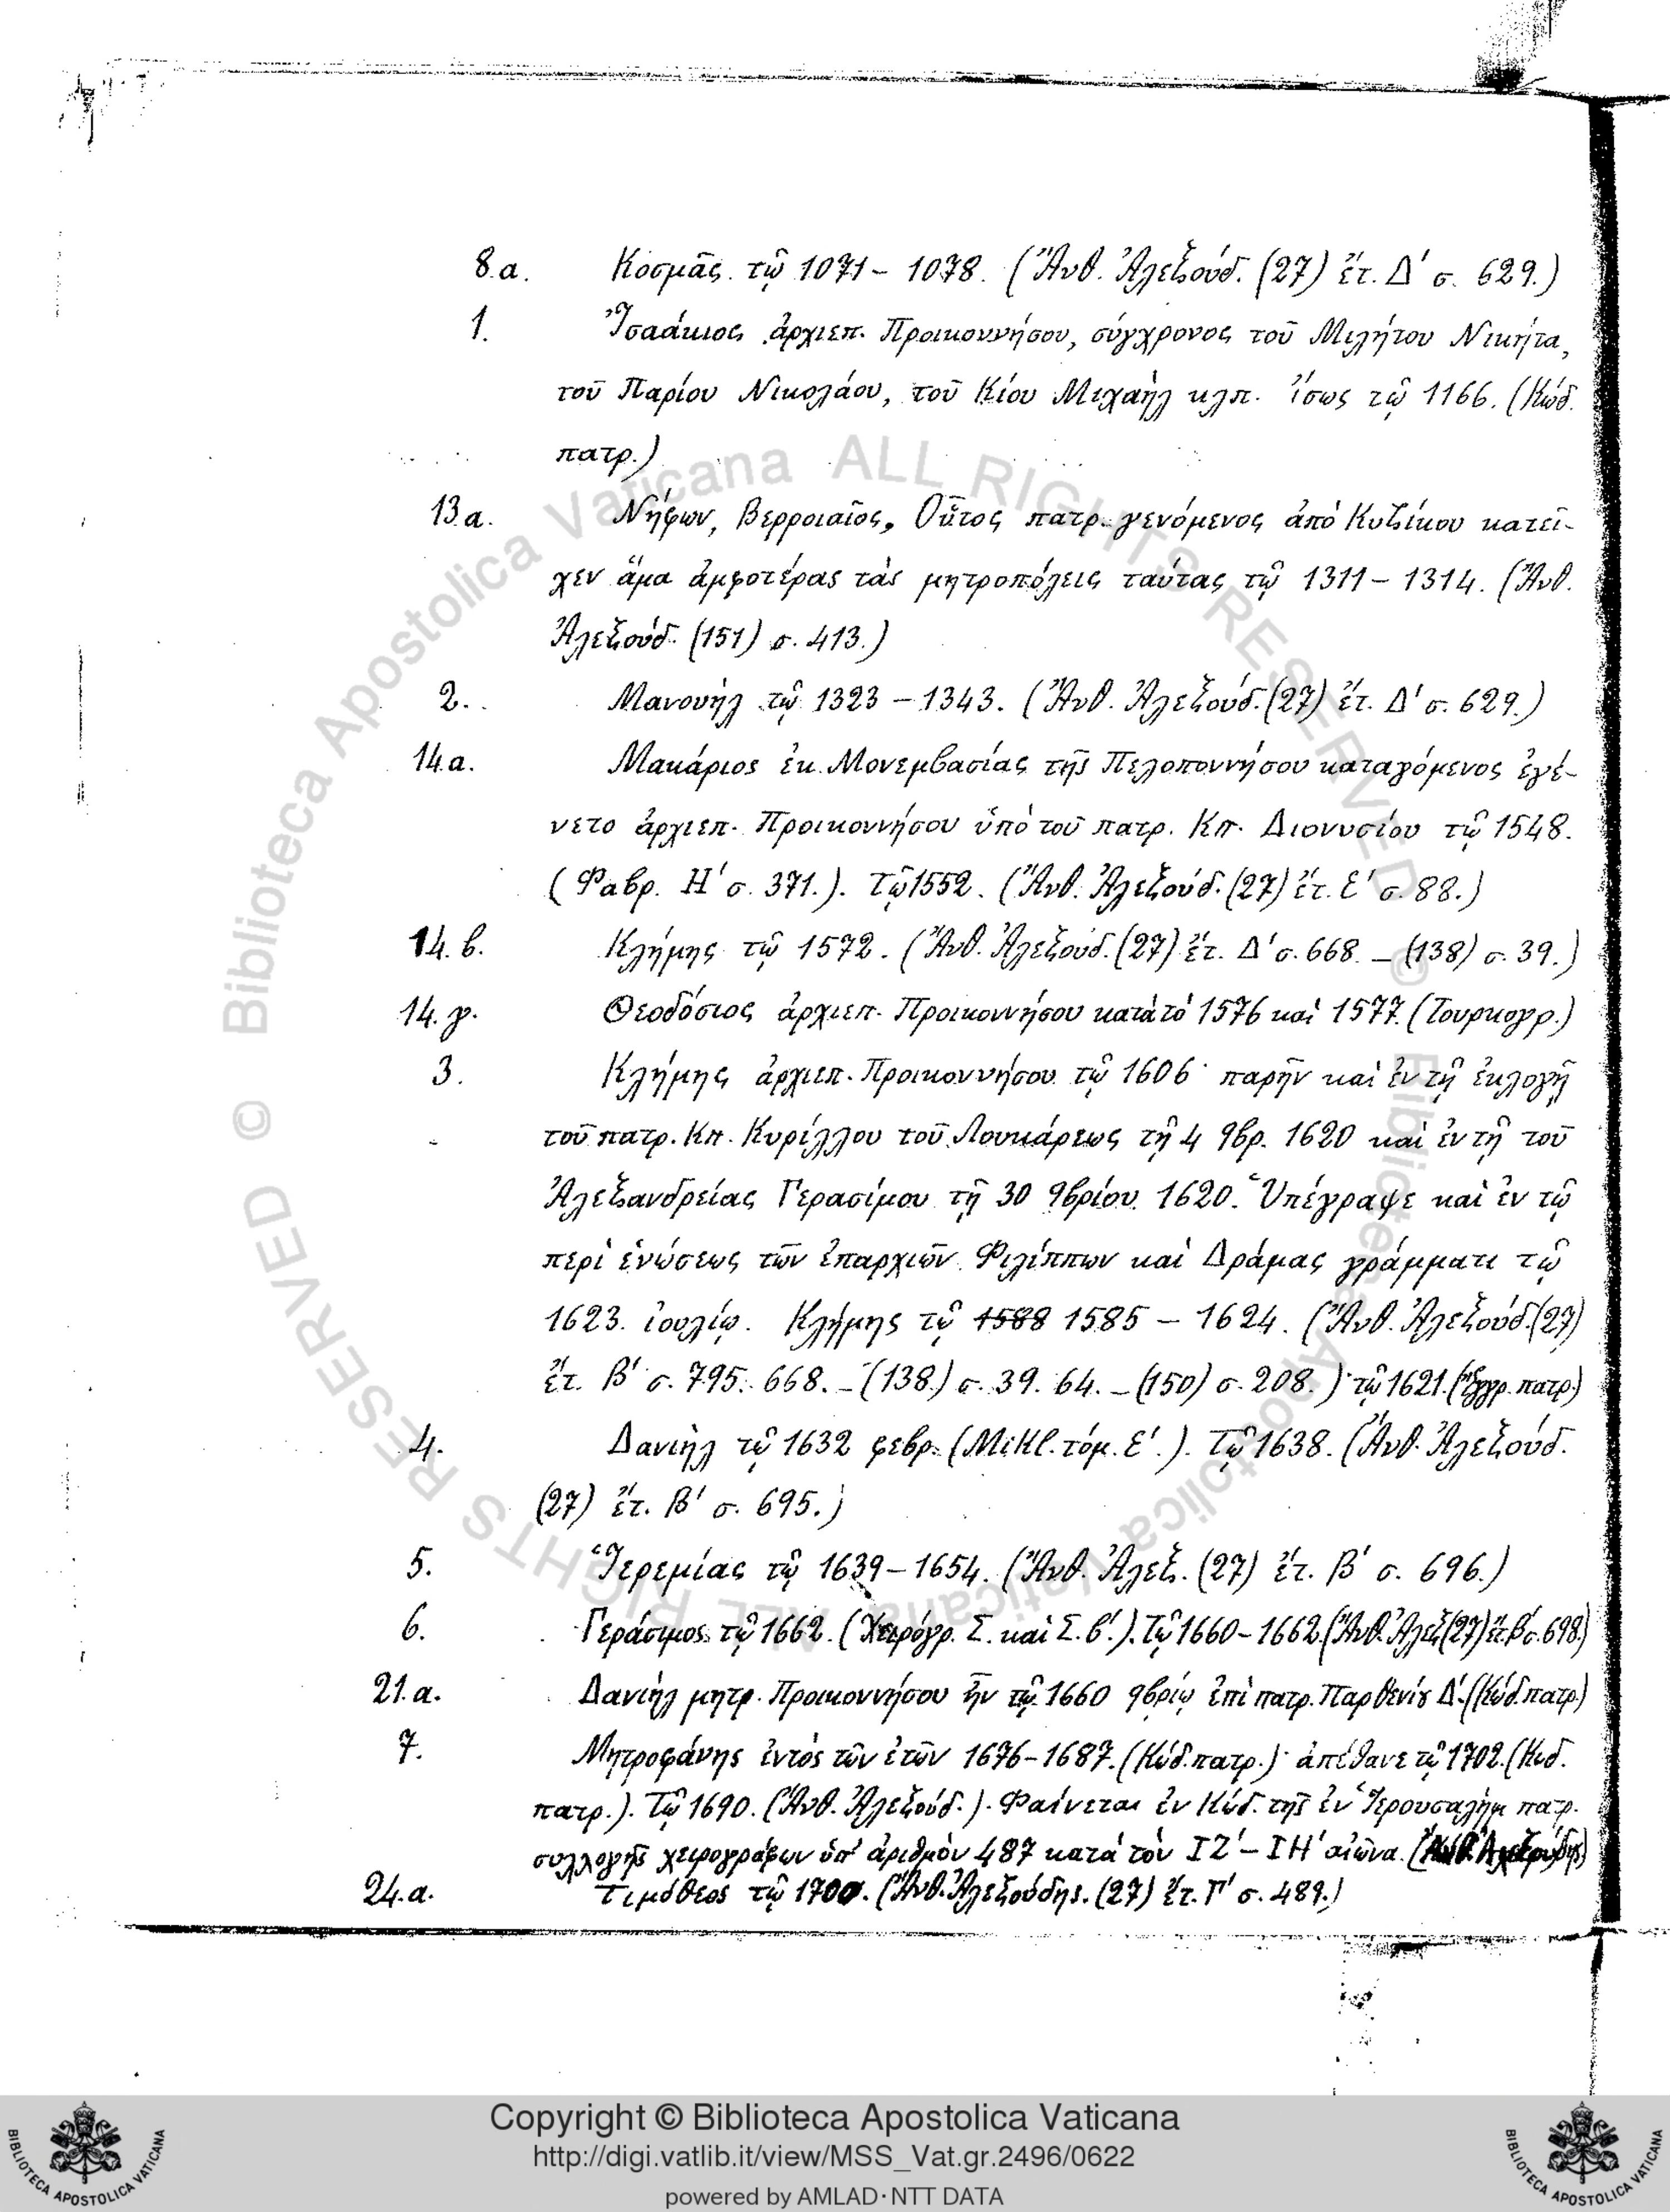 8.α. Κοσμᾶς τῷ 1071 – 1078. (Ἄνθ. Ἀλεξούδ. (27) ἔτ. Δ' σ. 629.)
1. Ἰσαάκιος ἀρχιεπ. Προικοννήσου, σύγχρονος τοῦ Μιλήτου Νικήτα,
τοῦ Παρίου Νικολάου, τοῦ Κίου Μιχαὴλ κλπ. ἴσως τῷ 1166. (Κώδ.
πατρ.)
13.α. Νήφων, Βερροιαῖος, Οὗτος πατρ. γενόμενος ἀπὸ Κυζίκου κατεῖ-
χεν ἅμα ἀμφοτέρας τὰς μητροπόλεις ταύτας τῷ 1311 – 1314. (Ἄνθ.
Ἀλεξούδ. (151) σ. 413.)
2. Μανουὴλ τῷ 1323 – 1343. (Ἄνθ. Ἀλεξούδ. (27) ἔτ. Δ' σ. 629.)
14.α. Μακάριος ἐκ Μονεμβασίας τῆς Πελοποννήσου καταγόμενος ἐγέ-
νετο ἀρχιεπ. Προικοννήσου ὑπὸ τοῦ πατρ. Κπ. Διονυσίου τῷ 1548.
(Φαβρ. Η' σ. 371.). Τῷ 1552. (Ἄνθ. Ἀλεξούδ. (27) ἔτ. Ε' σ. 88.)
14.β. Κλήμης τῷ 1572. (Ἄνθ. Ἀλεξούδ. (27) ἔτ. Δ' σ. 668. – (138) σ. 39.)
14.γ. Θεοδόσιος ἀρχιεπ. Προικοννήσου κατὰ τὸ 1576 καὶ 1577. (Τουρκογρ.)
3. Κλήμης ἀρχιεπ. Προικοννήσου τῷ 1606· παρῆν καὶ ἐν τῇ ἐκλογῇ
τοῦ πατρ. Κπ. Κυρίλλου τοῦ Λουκάρεως τῇ 4 9βρ. 1620 καὶ ἐν τῇ τοῦ
Ἀλεξανδρείας Γερασίμου τῇ 30 9βρίου 1620. Ὑπέγραψε καὶ ἐν τῷ
περὶ ἑνώσεως τῶν ἐπαρχιῶν Φιλίππων καὶ Δράμας γράμματι τῷ
1623. ἰουλίῳ. Κλήμης τῷ 1588 1585 – 1624. (Ἄνθ. Ἀλεξούδ. (27)
ἔτ. Β' σ. 795. 668. – (138) σ. 39. 64. – (150) σ. 208.)· τῷ 1621. (Ἔγγρ. πατρ.)
4. Δανιὴλ τῷ 1632 φεβρ. (MiKl. τόμ. Ε'.). Τῷ 1638. (Ἄνθ. Ἀλεξούδ.
(27) ἔτ. Β' σ. 695.)
5. Ἱερεμίας τῷ 1639 – 1654. (Ἄνθ. Ἀλεξ. (27) ἔτ. Β' σ. 696.)
6. Γεράσιμος τῷ 1662. (Χειρόγρ. Σ. καὶ Σ. β'.). Τῷ 1660 – 1662. (Ἄνθ. Ἀλεξ. (27) ἔτ. Β' σ. 698.)
21.α. Δανιὴλ μητρ. Προικοννήσου ἦν τῷ 1660 9βρίῳ ἐπὶ πατρ. Παρθενίου Δ'. (Κώδ. πατρ.)
7. Μητροφάνης ἐντὸς τῶν ἐτῶν 1676 – 1687. (Κώδ. πατρ.)· ἀπέθανε τῷ 1702. (Κώδ.
πατρ.). Τῷ 1690. (Ἄνθ. Ἀλεξούδ.). Φαίνεται ἐν Κώδ. τῆς ἐν Ἱερουσαλὴμ πατρ.
συλλογῆς χειρογράφων ὑπ' ἀριθμὸν 487 κατὰ τὸν ΙΖ' – ΙΗ' αἰῶνα.
24.α. Τιμόθεος τῷ 1700. (Ἄνθ. Ἀλεξούδης. (27) ἔτ. Γ' σ. 489.)
© Biblioteca Apostolica Vaticana ALL RIGHTS RESERVED © Biblioteca Apostolica Vaticana ALL RIGHTS RESERVED
Copyright © Biblioteca Apostolica Vaticana
http://digi.vatlib.it/view/MSS_Vat.gr.2496/0622
powered by AMLAD · NTT DATA
BIBLIOTECA APOSTOLICA VATICANA
BIBLIOTECA APOSTOLICA VATICANA